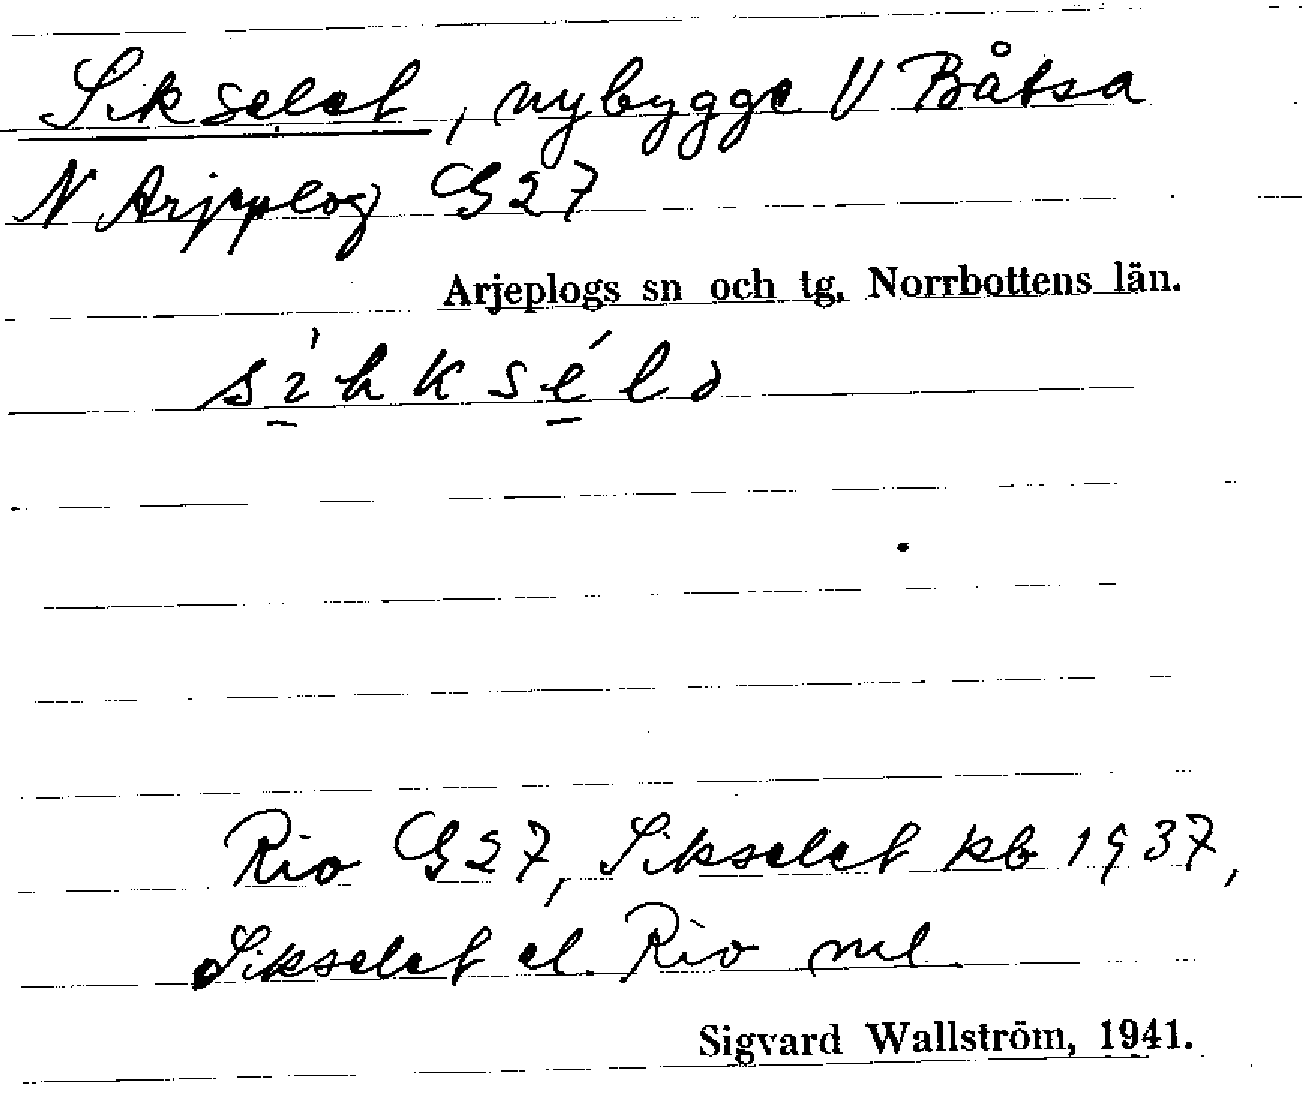 Sikselet, nybygge V Båtsa
N Arjeplog G27
Arjeplogs sn och tg, Norrbottens län.
sìhksélə
Rio G27, Sikselet kb 1937,
Sikselet el. Rio ml
Sigvard Wallström, 1941.